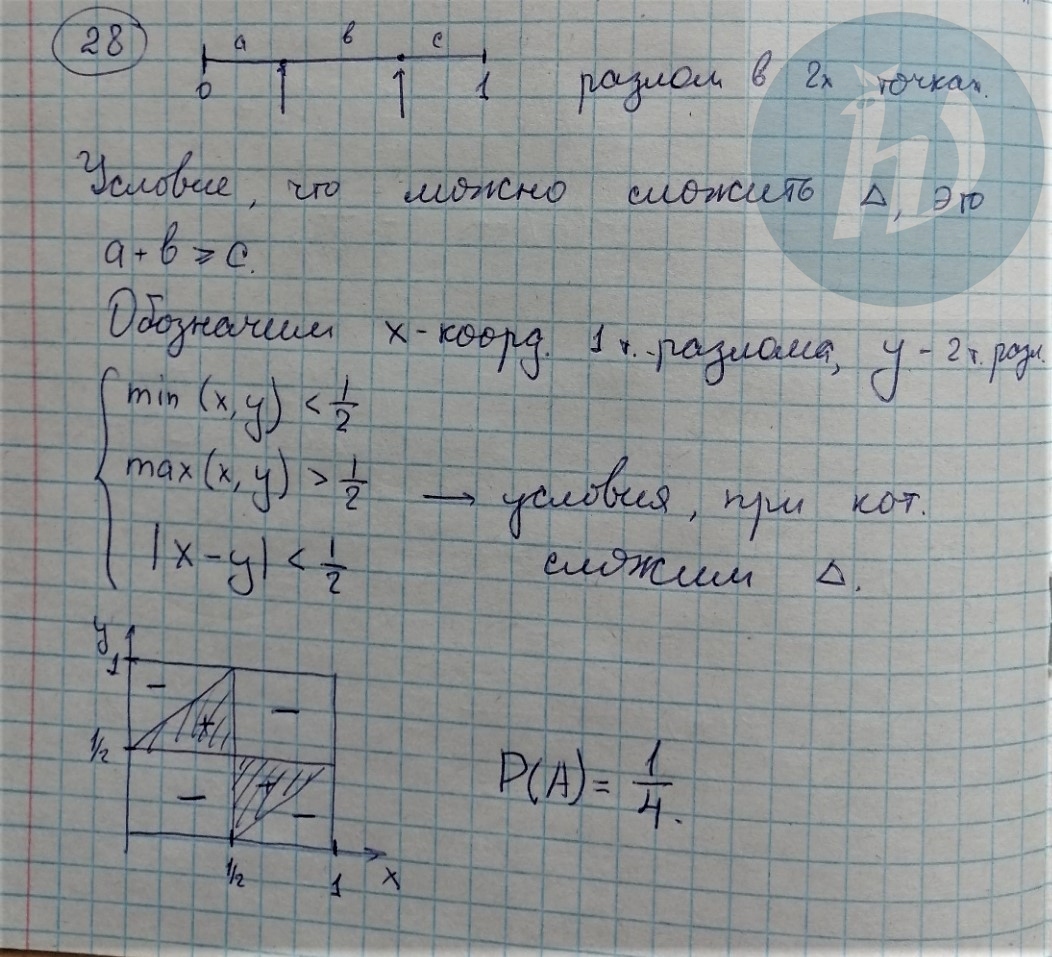 28
a b c
0 1
разлом в 2х точках.
Условие, что можно сложить Δ, это
a + b ⩾ c.
Обозначим x - коорд. 1 т. разлома, y - 2 т. разл.
min (x, y) < 1/2
max (x, y) > 1/2 → условия, при кот.
|x - y| < 1/2 сложим Δ.
y
1
- + -
1/2
- + -
1/2 1 x
P(A) = 1/4.